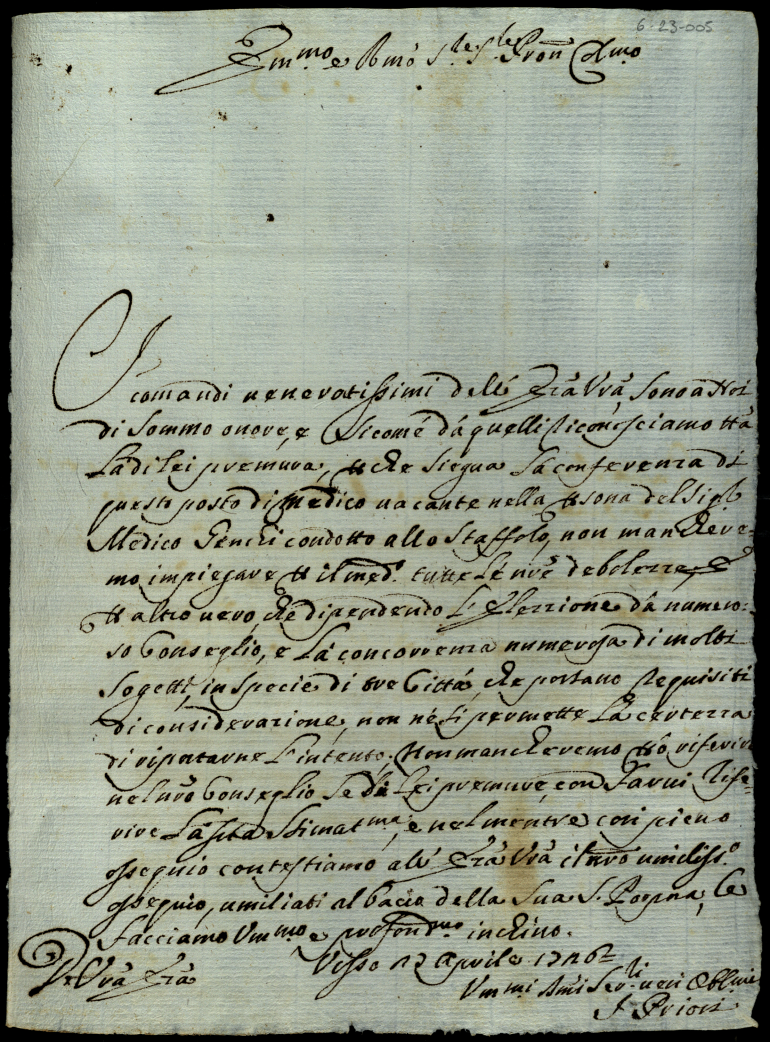 6-23-005
Emmo e Rmo Sre Sre Pron Colmo
I comandi veneratissimi dell' Eza Vra, sono a Noi
di Sommo onore, e Sicome da quelli riconosciamo tta
La di lei premura, che siegua La conferenza di
questo posto di Medico vacante nella psona del Sigr
Medico condotto allo Staffolo, non manchere-
mo impiegare p il med.o tutte Le nre debolezze, e
p altro vero, che dipendendo L'Elezzione da numero-
so Conseglio, e La concorrenza numerosa di molti
Sogetti, in specie di tre Città, che portano requisiti
di considerazione, non ne si permette La certezza
di riportarne L'intento. Non mancheremo però riferire
nel nro Conseglio Le di Lei premure, con farvi
La sua Stimatma, e nel mentre con pieno
ossequio contestiamo all' Eza Vra il nro umiliss.o
ossequio, umiliati al bacio della Sua S. Porpora, Le
facciamo Vmmo e profondmo inchino.
D. Vra Eza
Visso 12 Aprile
Vmmi Serri veri Obbmi
I Priori